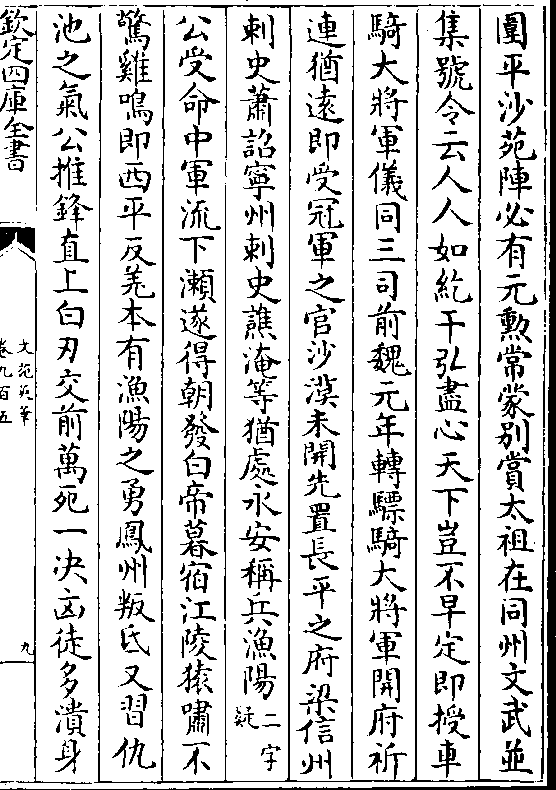 圍平沙苑陣必有元勲常蒙别賞太祖在同州文武並
集號令云人人如紇干弘盡心天下豈不早定即授車
騎大將軍儀同三司前魏元年轉驃騎大將軍開府祈
連猶遠即受冠軍之官沙漠未開先置長平之府梁信州
刺史蕭詔寧州刺史譙淹等猶處永安稱兵漁陽二字疑
公受命中軍流下瀬遂得朝發白帝暮宿江陵猿嘯不
驚雞鳴即西平反羌本有漁陽之勇鳳州叛氐又習仇
池之氣公推鋒直上白刃交前萬死一决凶徒多潰身
欽定四庫全書
文苑英華
卷九百五
九